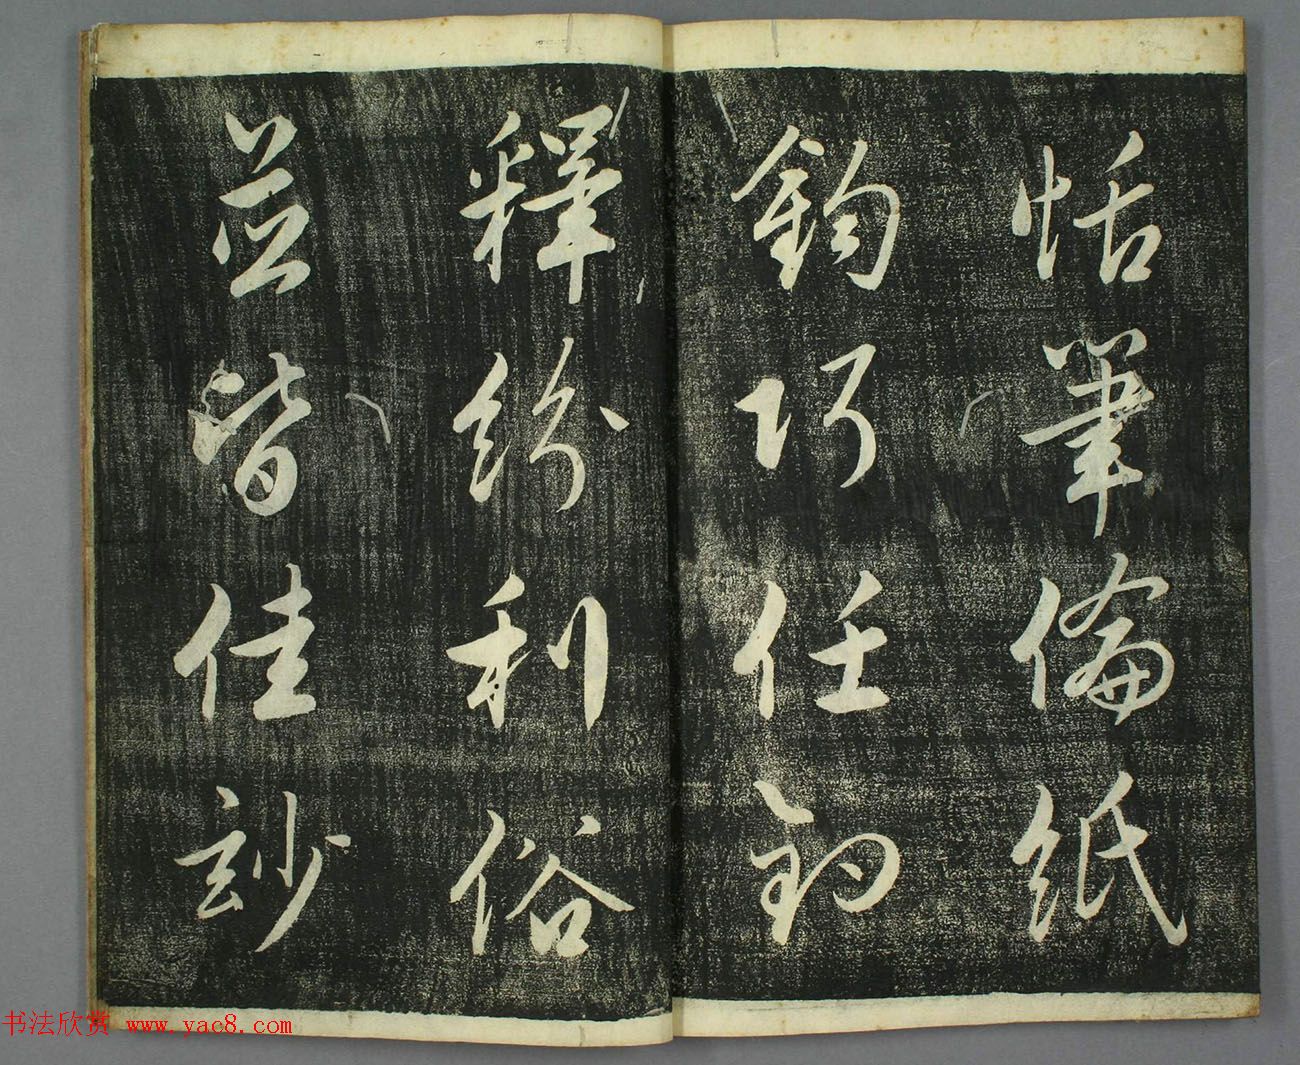 恬筆倫紙
鈞巧任釣
釋紛利俗
並皆佳妙
书法欣赏 www.yac8.com